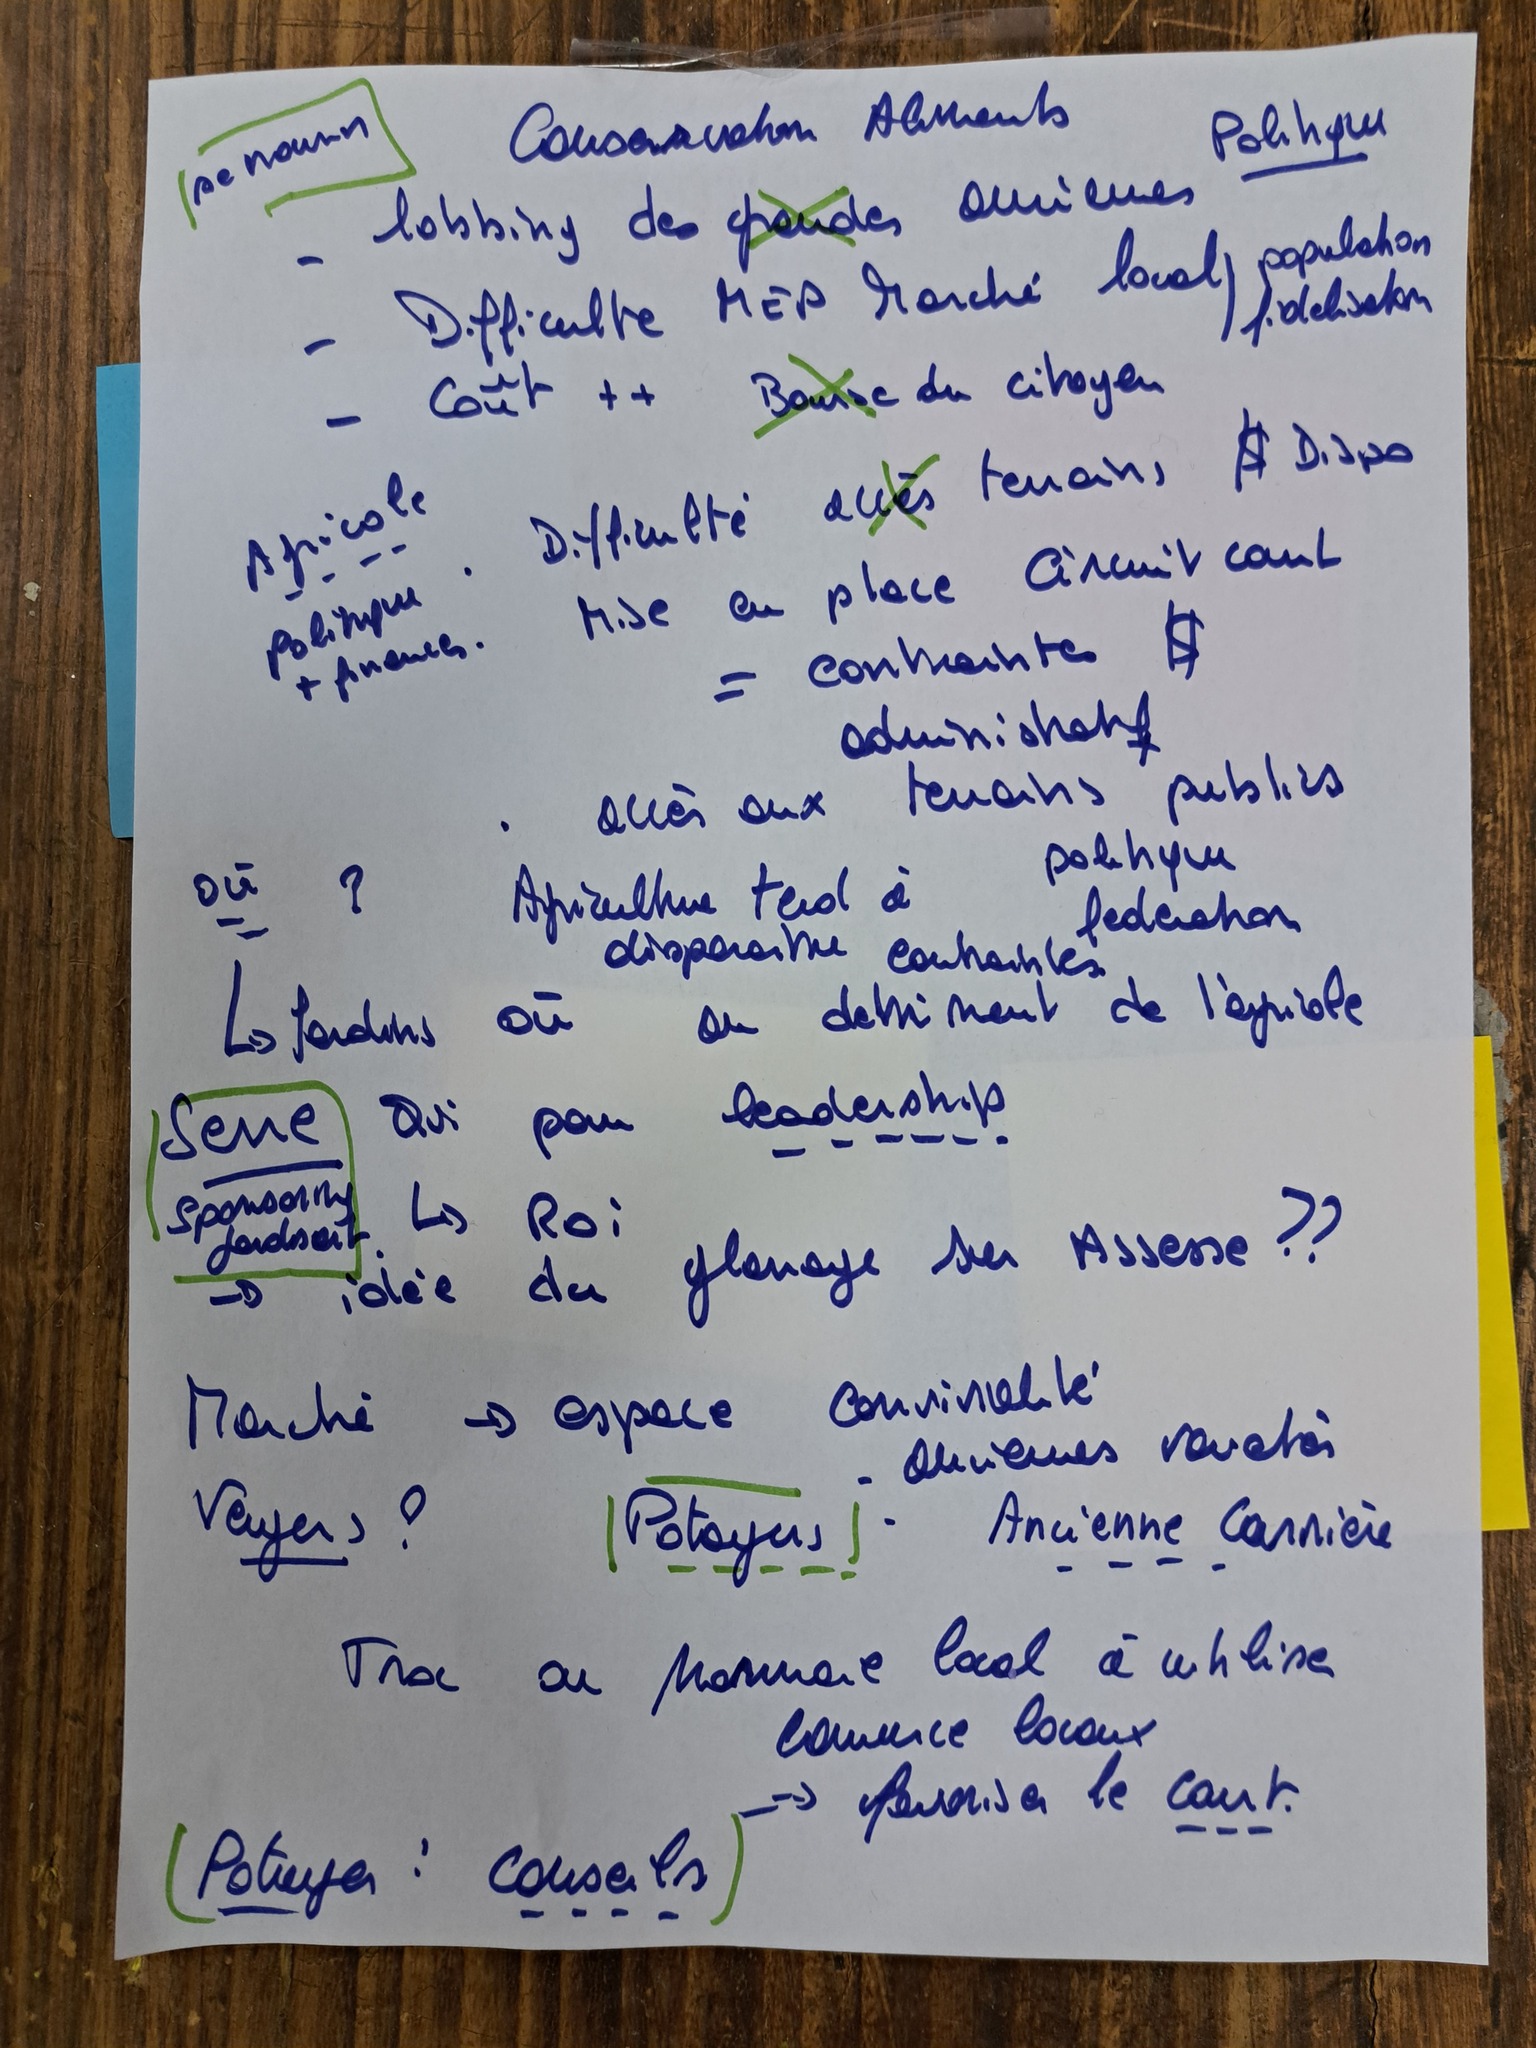 se nourrir
Conservation Aliments
Politique
- lobbing des grandes
- Difficulte MEP Marché local / population fidelisation
- Coût ++ Bourse du citoyen
Agricole
politique
+ finances.
. Difficulté accès terrains $ Dispo
. Mise en place Circuit court
= contraintes $
administratif
. accès aux terrains publics
où ?
Agriculture tend à
disparaitre contraintes
politique
federation
↳ Jardins où au detriment de l'agricole
Serre Qui pour leadership
sponsoring
↳ Roi
→ idée du glanage sur Assesse ??
Marché → espace convivialité
. anciennes variétés
Vergers ? Potagers . Ancienne Carrière
Troc ou Monnaie local à utiliser
commerce locaux
→ favoriser le court.
Potager : conseils